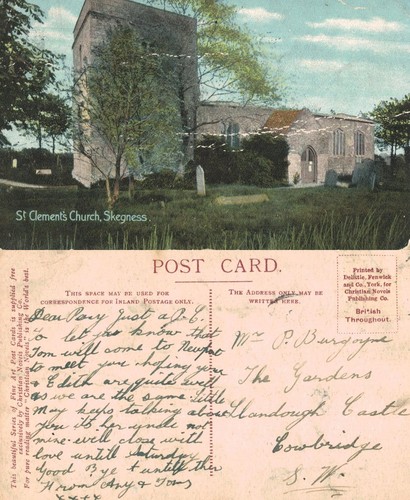 St Clement's Church, Skegness.
POST CARD.
This beautiful Series of Fine Art Post Cards is supplied free
exclusively by Christian Novels Publishing Co.
For pure reading matter Christian Novels is the World's best.
THIS SPACE MAY BE USED FOR
CORRESPONDENCE FOR INLAND POSTAGE ONLY.
Dear Percy Just a P.C.
to let you know that
Tom will come to Newport
to meet you hoping you
& Edith are quite well
as we are the same little
May keeps talking about
you its her uncle not
mine well close with
love until Saturday
Good Bye & until then
From Amy & Tom
xxxx
THE ADDRESS ONLY MAY BE
WRITTEN HERE.
Printed by
Delittle, Fenwick
and Co., York, for
Christian Novels
Publishing Co.
British
Throughout.
Mr P. Burgoyne
The Gardens
Llandough Castle
Cowbridge
S. W.